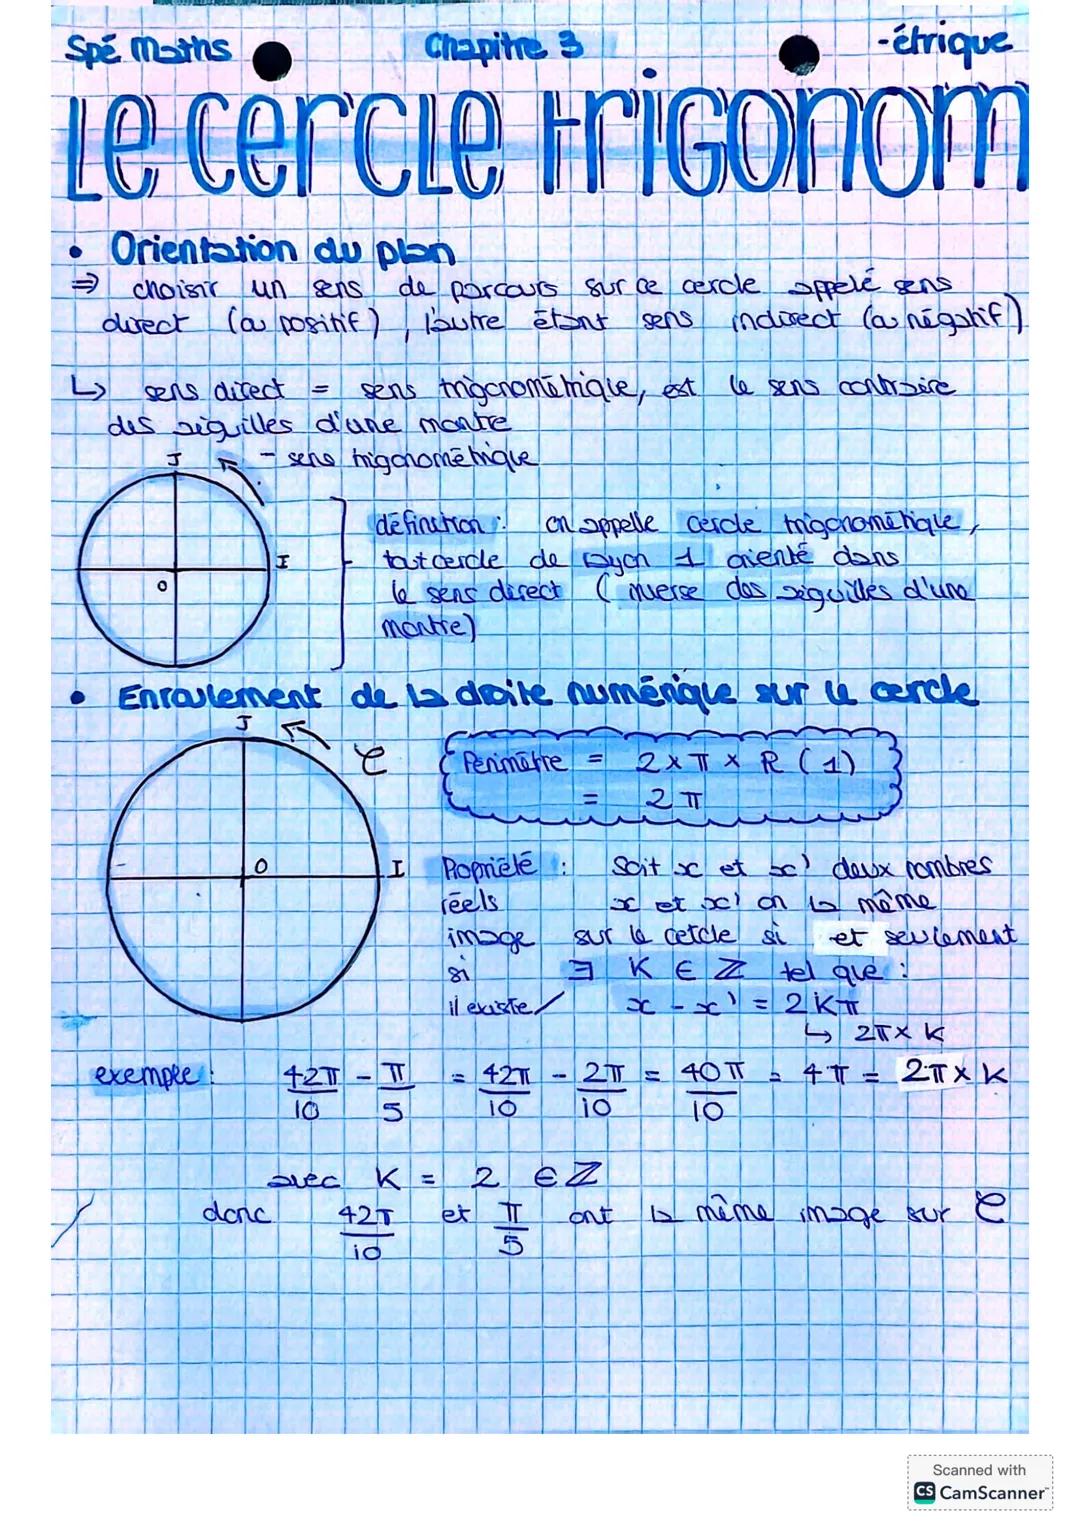 Spé Maths Chapitre 3 -étrique
Le cercle trigonom
• Orientation du plan
⇒ choisir un sens de parcours sur ce cercle appelé sens
direct (ou positif), l'autre étant sens indirect (ou négatif)
↳ sens direct = sens trigonométrique, est le sens contraire
des aiguilles d'une montre
J - sens trigonométrique
définition : on appelle cercle trigonométrique,
tout cercle de rayon 1 orienté dans
I
O
le sens direct (inverse des aiguilles d'une
montre)
• Enroulement de la droite numérique sur le cercle
J
C
Périmètre = 2 x π x R (1)
= 2π
O I
Propriété : Soit x et x' deux nombres
réels x et x' on la même
image sur le cercle si et seulement
si ∃ K ∈ ℤ tel que :
il existe/ x - x' = 2Kπ
↳ 2π x K
exemple : 42π/10 - π/5 = 42π/10 - 2π/10 = 40π/10 = 4π = 2π x K
avec K = 2 ∈ ℤ
donc 42π/10 et π/5 ont la même image sur C
Scanned with
CS CamScanner